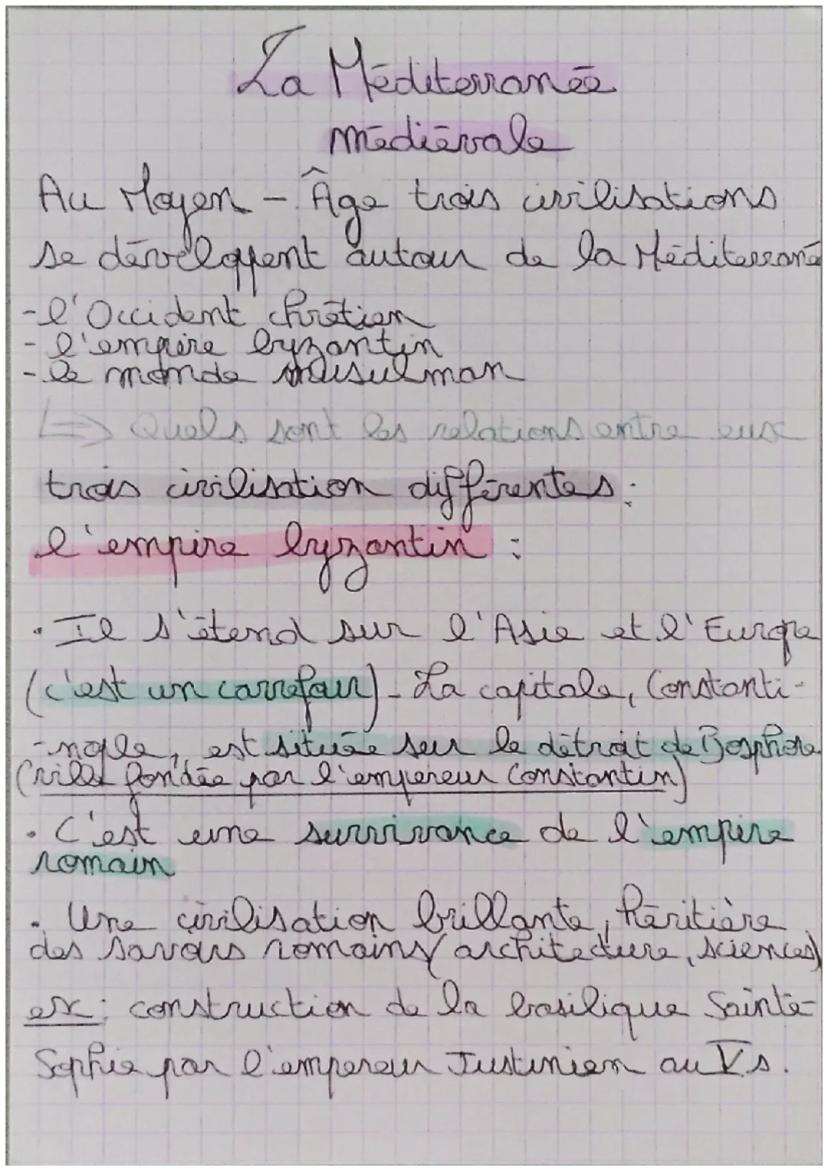 La Méditerranée
médiévale
Au Moyen-Âge trois civilisations
se développent autour de la Méditerrané
- l'Occident chrétien
- l'empire byzantin
- le monde musulman
└=> Quels sont les relations entre eux
trois civilisation différentes :
l'empire byzantin :
• Il s'étend sur l'Asie et l'Europe
(c'est un carrefour) - La capitale, Constanti-
-nople, est située sur le détroit de Bosphore
(ville fondée par l'empereur Constantin)
• C'est une survivance de l'empire
romain
• Une civilisation brillante, héritière
des savoirs romains (architecture, sciences)
ex : construction de la basilique Sainte-
Sophie par l'empereur Justinien au V s.